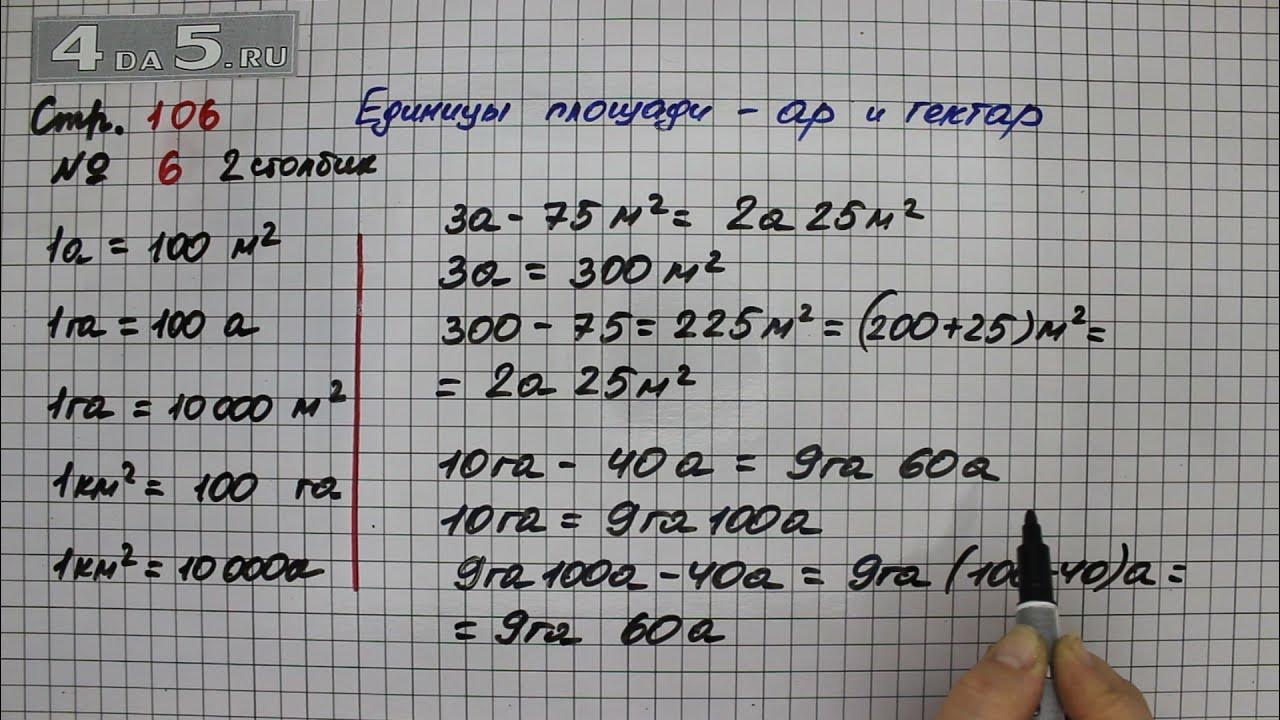 4DA5.RU
Стр. 106
Единицы площади - ар и гектар
№ 6 2 столбик
1а = 100 м²
1га = 100 а
1га = 10 000 м²
1км² = 100 га
1км² = 10 000а
3а - 75 м² = 2а 25м²
3а = 300 м²
300 - 75 = 225м² = (200+25)м² =
= 2а 25м²
10га - 40а = 9га 60а
10га = 9га 100а
9га 100а - 40а = 9га (100-40)а =
= 9га 60а